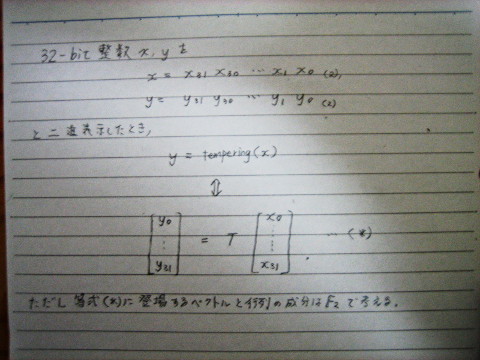 32-bit 整数 x, y を
x = x31 x30 ⋯ x1 x0 (2),
y = y31 y30 ⋯ y1 y0 (2)
と二進表示したとき,
y = tempering(x)
⇕
[y0 ⋮ y31] = T [x0 ⋮ x31] . ⋯ (*)
ただし 等式(*)に登場するベクトルと行列の成分は F2 で考える.